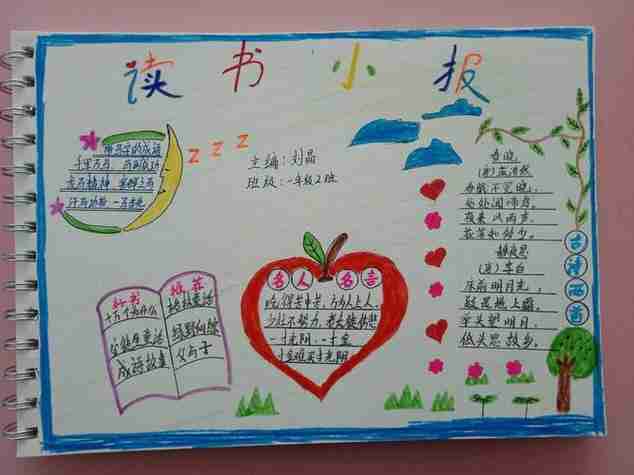 读书小报
带马字的成语
千军万马 马到成功
龙马精神
汗马功劳 一马当先
z z z
主编:刘晶
班级:一年级2班
春晓
(唐)孟浩然
春眠不觉晓,
处处闻啼鸟。
夜来风雨声,
花落知多少。
静夜思
(唐)李白
床前明月光,
疑是地上霜。
举头望明月,
低头思故乡。
古诗两首
好书
十万个为什么
安徒生童话
成语故事
推荐
格林童话
绿野仙踪
父与子
名人名言
吃得苦中苦,方为人上人。
少壮不努力,老大徒伤悲
一寸光阴一寸金
寸金难买寸光阴